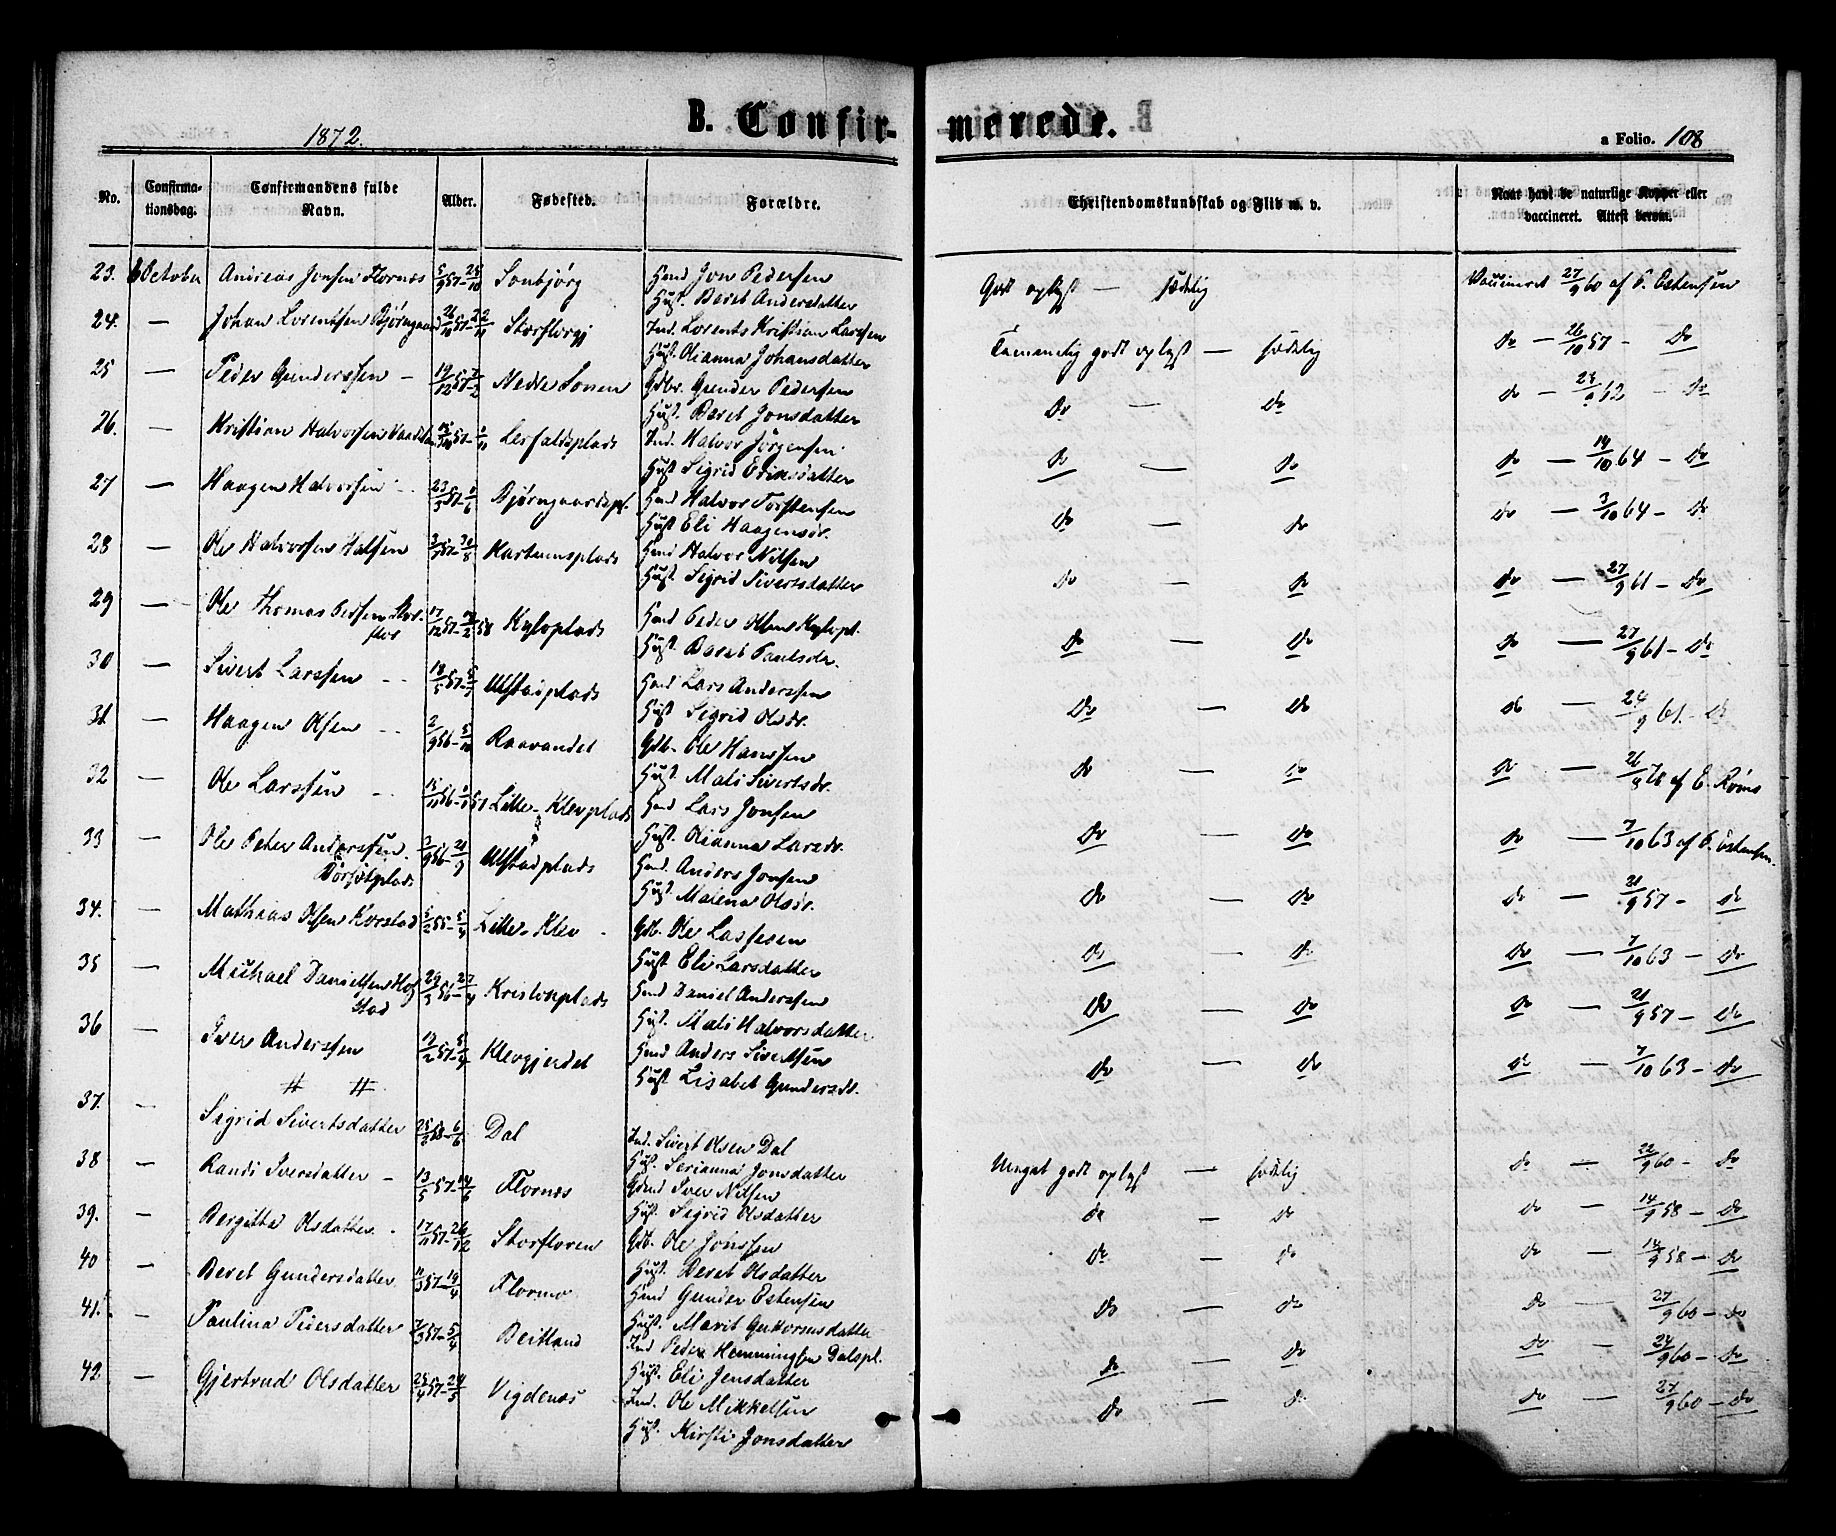 1872.
B. Confir-
merede.
a Folio. 108
No.
Confirma-
tionsdag.
Confirmandens fulde
Navn.
Alder.
Fødested.
Forældre.
Christendomskundskab og Flid m. v.
Naar havt de naturlige Kopper eller
vaccineret. Attest derom.
23. 6 October Andreas Jonsen Flornes 5/9 57 - 25/10 Sonbjørg Hmd Jon Pedersen
Hust. Beret Andersdatter
Godt oplyst — sædelig Vaccineret 27/9 60 af P. Østensen
24. — Johan Lorentsen Bjørngaard Storflorgj Ind. Lorents Kristian Larssen
Hust. Olianna Johansdatter
Temmelig godt oplyst — sædelig do — 26/10 57 - do
25 — Peder Gunderssen — 19/12 57 - 2/2 Nedre Sonen Gdbr. Gunder Pedersen
Hust. Beret Jonsdatter
do — do do — do
26. — Kristian Halvorsen Lerfaldsplads Ind. Halvor Jörgensen
Hust Sigrid Eriksdatter
do — do do — 14/10 64 - do
27 — Haagen Halvorsen Bjørngaardspl. Hmd Halvor Torstensen
Hust Eli Haagensdr.
do — do do — 3/10 64 - do
28 — Ole Halvorsen Halsen Hmd Halvor Nilsen
Hust. Sigrid Sivertsdatter
do — do do — 27/9 61 - do
29 — Ole Thomas Pedersen Stor-
flor Kyloplads Hmd Peder Olsen Kylopl.
Hust. Beret Paulsdr.
do — do do — 27/9 61 - do
30 — Sivert Larssen 18/5 57 Ulstadplads Hmd Lars Anderssen
Hust Sigrid Olsdr.
do — do do — 24/9 61 - do
31 — Haagen Olsen 2/9 56 - 5/10 Raavandet Gdb. Ole Hanssen
Hust. Mali Sivertsdr.
do — do do — af E. Røins
32 — Ole Larssen Lille-Klevplads Hmd Lars Jonsen
Hust. Olianna Larsdr.
do — do do — 7/10 63 af P. Østensen
33 — Ole Peter Anderssen 3/9 56 - 21/9 Ulstadplads Hmd. Anders Jonsen
Hust. Malena Olsdr.
do — do do — 21/9 57 - do
34. — Mathias Olsen Korstad Lille-Klev Gdb. Ole Larssen
Hust Eli Larsdatter
do — do do — 7/10 63 - do
35 — Michael Danielsen Hof
stad 29/3 56 - 27/4 Hmd Daniel Anderssen
Hust. Mali Halvorsdatter
do — do do — 21/9 57 - do
36 — Iver Anderssen Klevgjerdet Hmd Anders Sivertsen
Hust Lisabet Gundersdr.
do — do do — 7/10 63 - do
37. — Sigrid Sivertsdatter Dal Ind. Sivert Olsen Dal
Hust. Serianna Jonsdatter
Meget godt oplyst — sædelig do — 22/9 60 - do
38 — Randi Iversdatter 13/5 57 - 14/6 Flornes Gdmd Iver Nilsen
Hust. Sigrid Olsdatter
do — do do — 14/9 58 - do
39. — Bergitta Olsdatter 17/11 57 - 26/12 Storfloren Gdb. Ole Jonssen
Hust. Beret Olsdatter
do — do do — 14/9 58 - do
40 — Beret Gundersdatter 11/3 57 - 19/4 Flormo Hmd Gunder Estensen
Hust. Marit
do — do do — 27/9 60 - do
41. — Paulina Pedersdatter 7/3 57 - 5/4 Beitland Ind Peder Hemmingsen Dalspl.
Hust. Eli Jensdatter
do — do do — 24/9 60 - do
42 — Gjertrud Olsdatter 25/4 57 - 24/5 Vigdenes Ind. Ole Mikkelsen
Hust. Kirsti Jonsdatter
do — do do — 27/9 60 - do